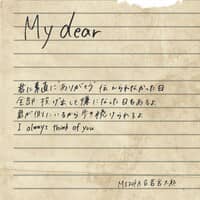 My dear
君に素直に「ありがとう」伝えられなかった日
全部 投げ出して嫌になった日もあるよ
君が側にいるから歩き続けられるよ
I always think of you